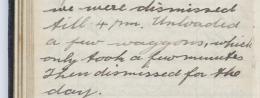 we were dismissed
till 4 pm. Unloaded
a few waggons, which
only took a few minutes
Then dismissed for the
day.